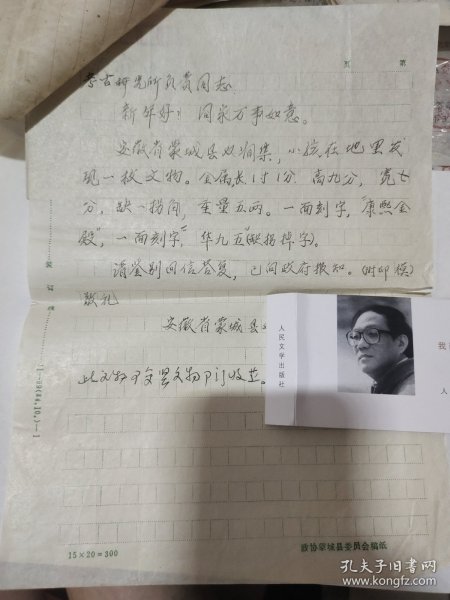 页 第
考古研究所负责同志
新年好！阖家万事如意。
安徽省蒙城县双涧集，小孩在地里发
现一枚文物。金属长1寸1分 高九分，宽七
分，缺一拐角，重量五两。一面刻字，“康熙金
殿”，一面刻字，“华九五”（缺拐掉字）。
请鉴别回信答复，已向政府报知。（附印模）
敬礼
安徽省蒙城县
此文物
装订线
15×20=300
政协蒙城县委员会稿纸
人民文学出版社
我
人
孔夫子旧书网
www.kongfz.com